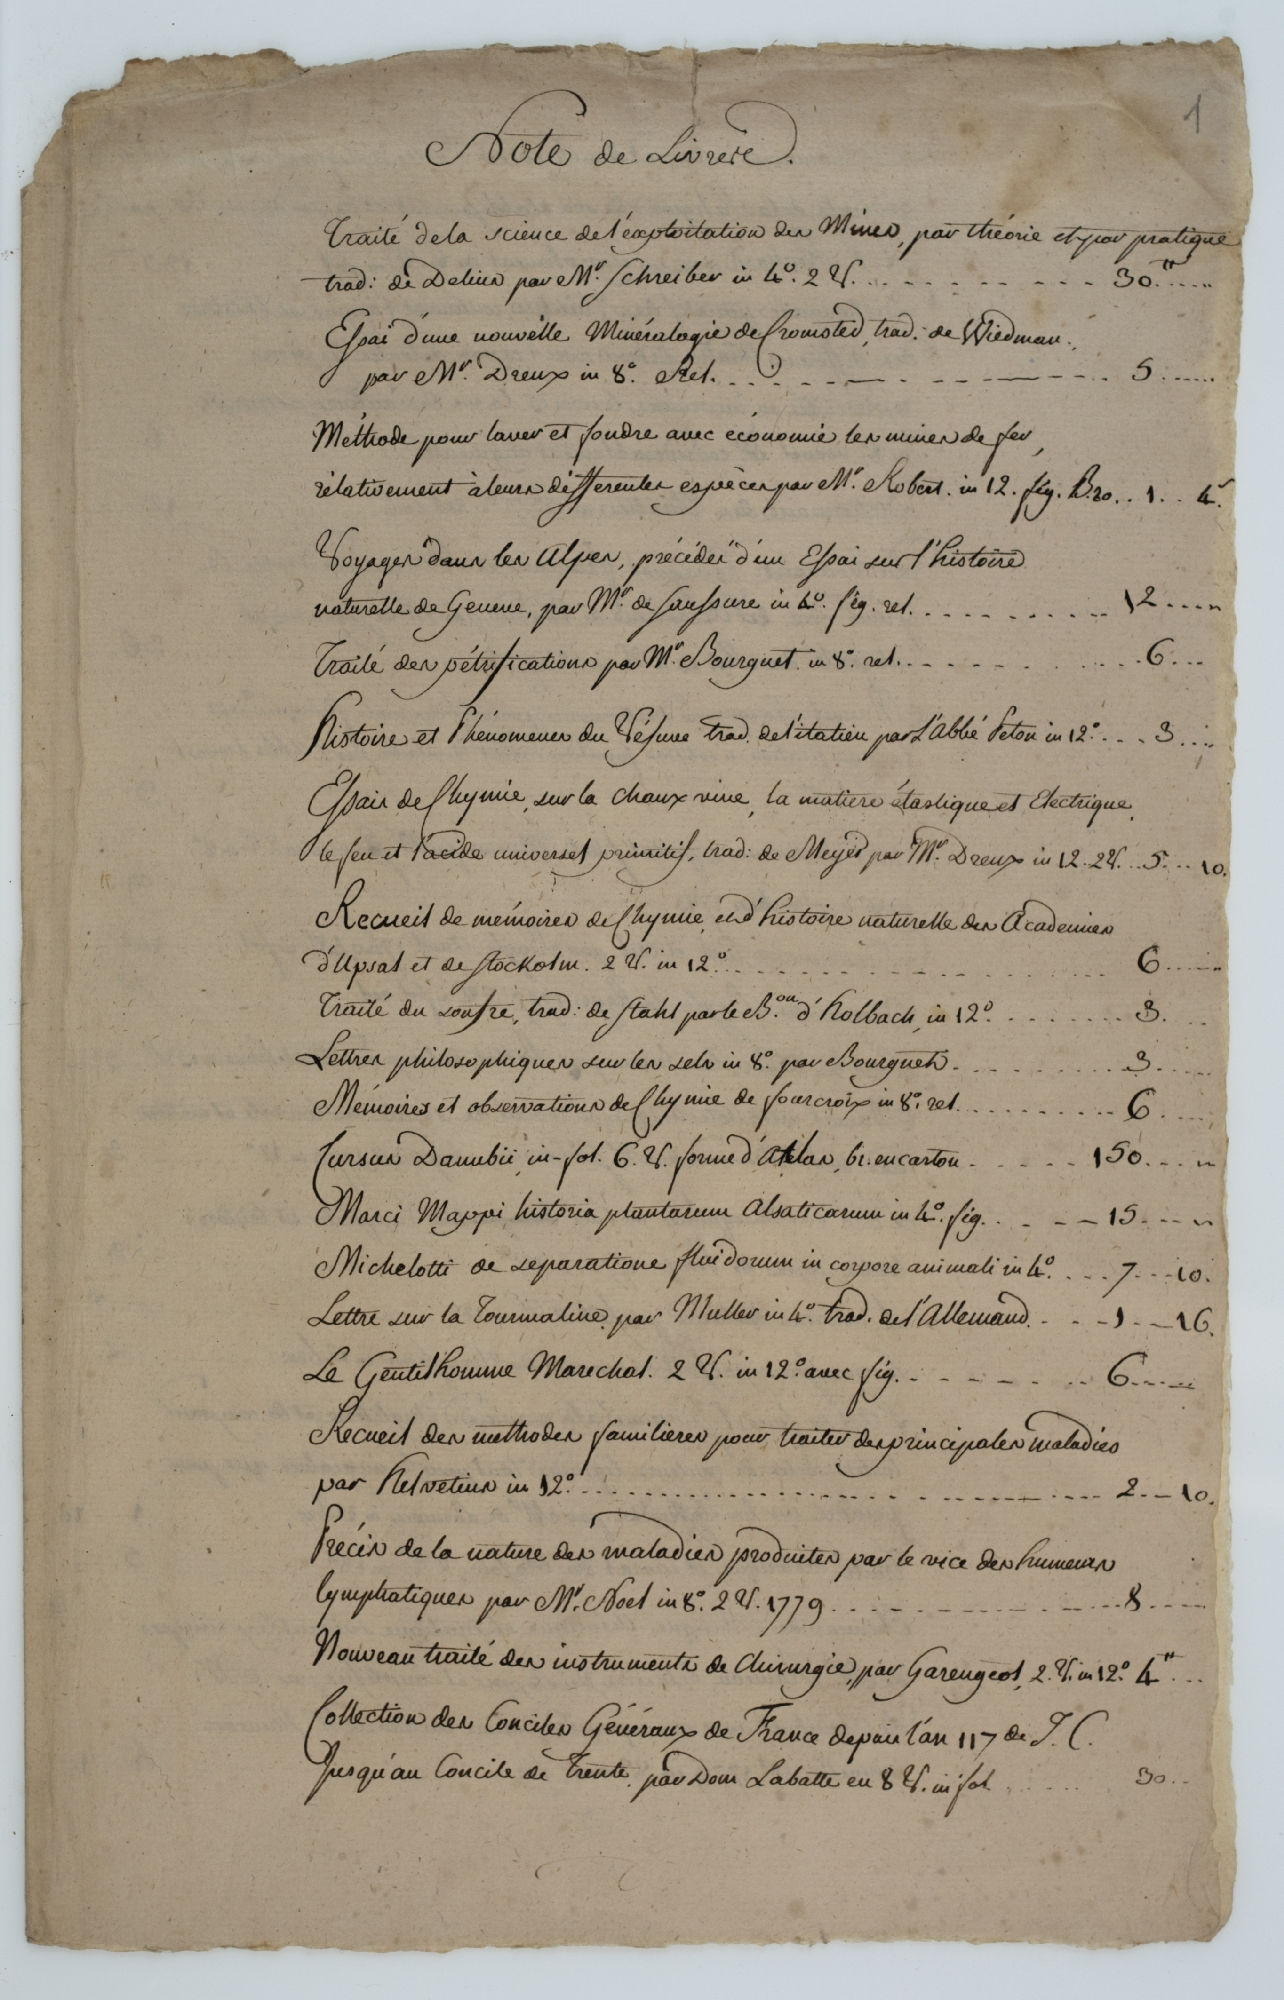 1
Note de Livres.
Traité de la science de l'exploitation des Mines, par théorie et par pratique
trad: de Delius par Mr. Schreiber in 4o. 2 V. . . . . . . . . . . 30.tt....
Essai d'une nouvelle Minéralogie de Cronsted, trad. de Wiedman.,
par Mr. Dreux in 8o. Rel. . . . . . . . . . . 5......
Méthode pour laver et fondre avec économie les mines de fer,
rélativement à leurs différentes espèces par Mr. Robert. in 12. fig. Bro. . . 1. . . 4s.
Voyages dans les Alpes, précédés d'un Essai sur l'histoire
naturelle de Geneve, par Mr. de Saussure in 4o. fig. rel. . . . . . . . . . . 12.....
Traité des pétrifications par Mr. Bourguet in 8o. rel. . . . . . . . . . . . 6....
Histoire et Phénomenes du Vésuve trad. de l'italien par L'Abbé Peton in 12o. . . . 3....
Essais de Chymie, sur la chaux vive, la matiere élastique et Electrique,
le feu et l'acide universel primitif, trad: de Meyer par Mr. Dreux in 12. 2 V. . . 5. . . 10.
Recueil de mémoires de Chymie, et d'histoire naturelle des Academies
d'Upsal et de Stockolm. 2 V. in 12o. . . . . . . . . . . . . . 6......
Traité du soufre, trad: de Stahl par le B.on d'Holbach, in 12o. . . . . . . . . 3. . .
Lettres philosophiques sur les sels in 8o. par Bourguet. . . . . . . . . 3.....
Mémoires et observations de Chymie de fourcroix in 8o. rel. . . . . . . . . . 6....
Cursus Danubii in-fol. 6. V. forme d'Atlas, br. en carton. . . . . . 150....
Marci Mappi historia plantarum Alsaticarum in 4o. fig. . . . . . 15....
Michelotti de separatione fluidorum in corpore animali in 4o. . . . 7. . . 10.
Lettre sur la Tourmaline, par Muller in 4o. trad. de l'Allemand. . . . . 1. . 16.
Le Gentilhomme Marechal. 2 V. in 12o. avec fig. . . . . . . . . 6.....
Recueil des methodes familieres pour traiter des principales maladies
par Helvetius in 12o. . . . . . . . . . . . . . . . . 2. . 10.
Précis de la nature des maladies produites par le vice des humeurs
lymphatiques par Mr. Noel in 8o. 2 V. 1779. . . . . . . . . . . 8.....
Nouveau traité des instruments de Chirurgie, par Garengeot, 2. V. in 12o. 4tt...
Collection des Conciles Généraux de France depuis l'an 117 de J. C.
Jusqu'au Concile de Trente, par Dom Labatte en 8 V. in fol . . . . . 30. . .